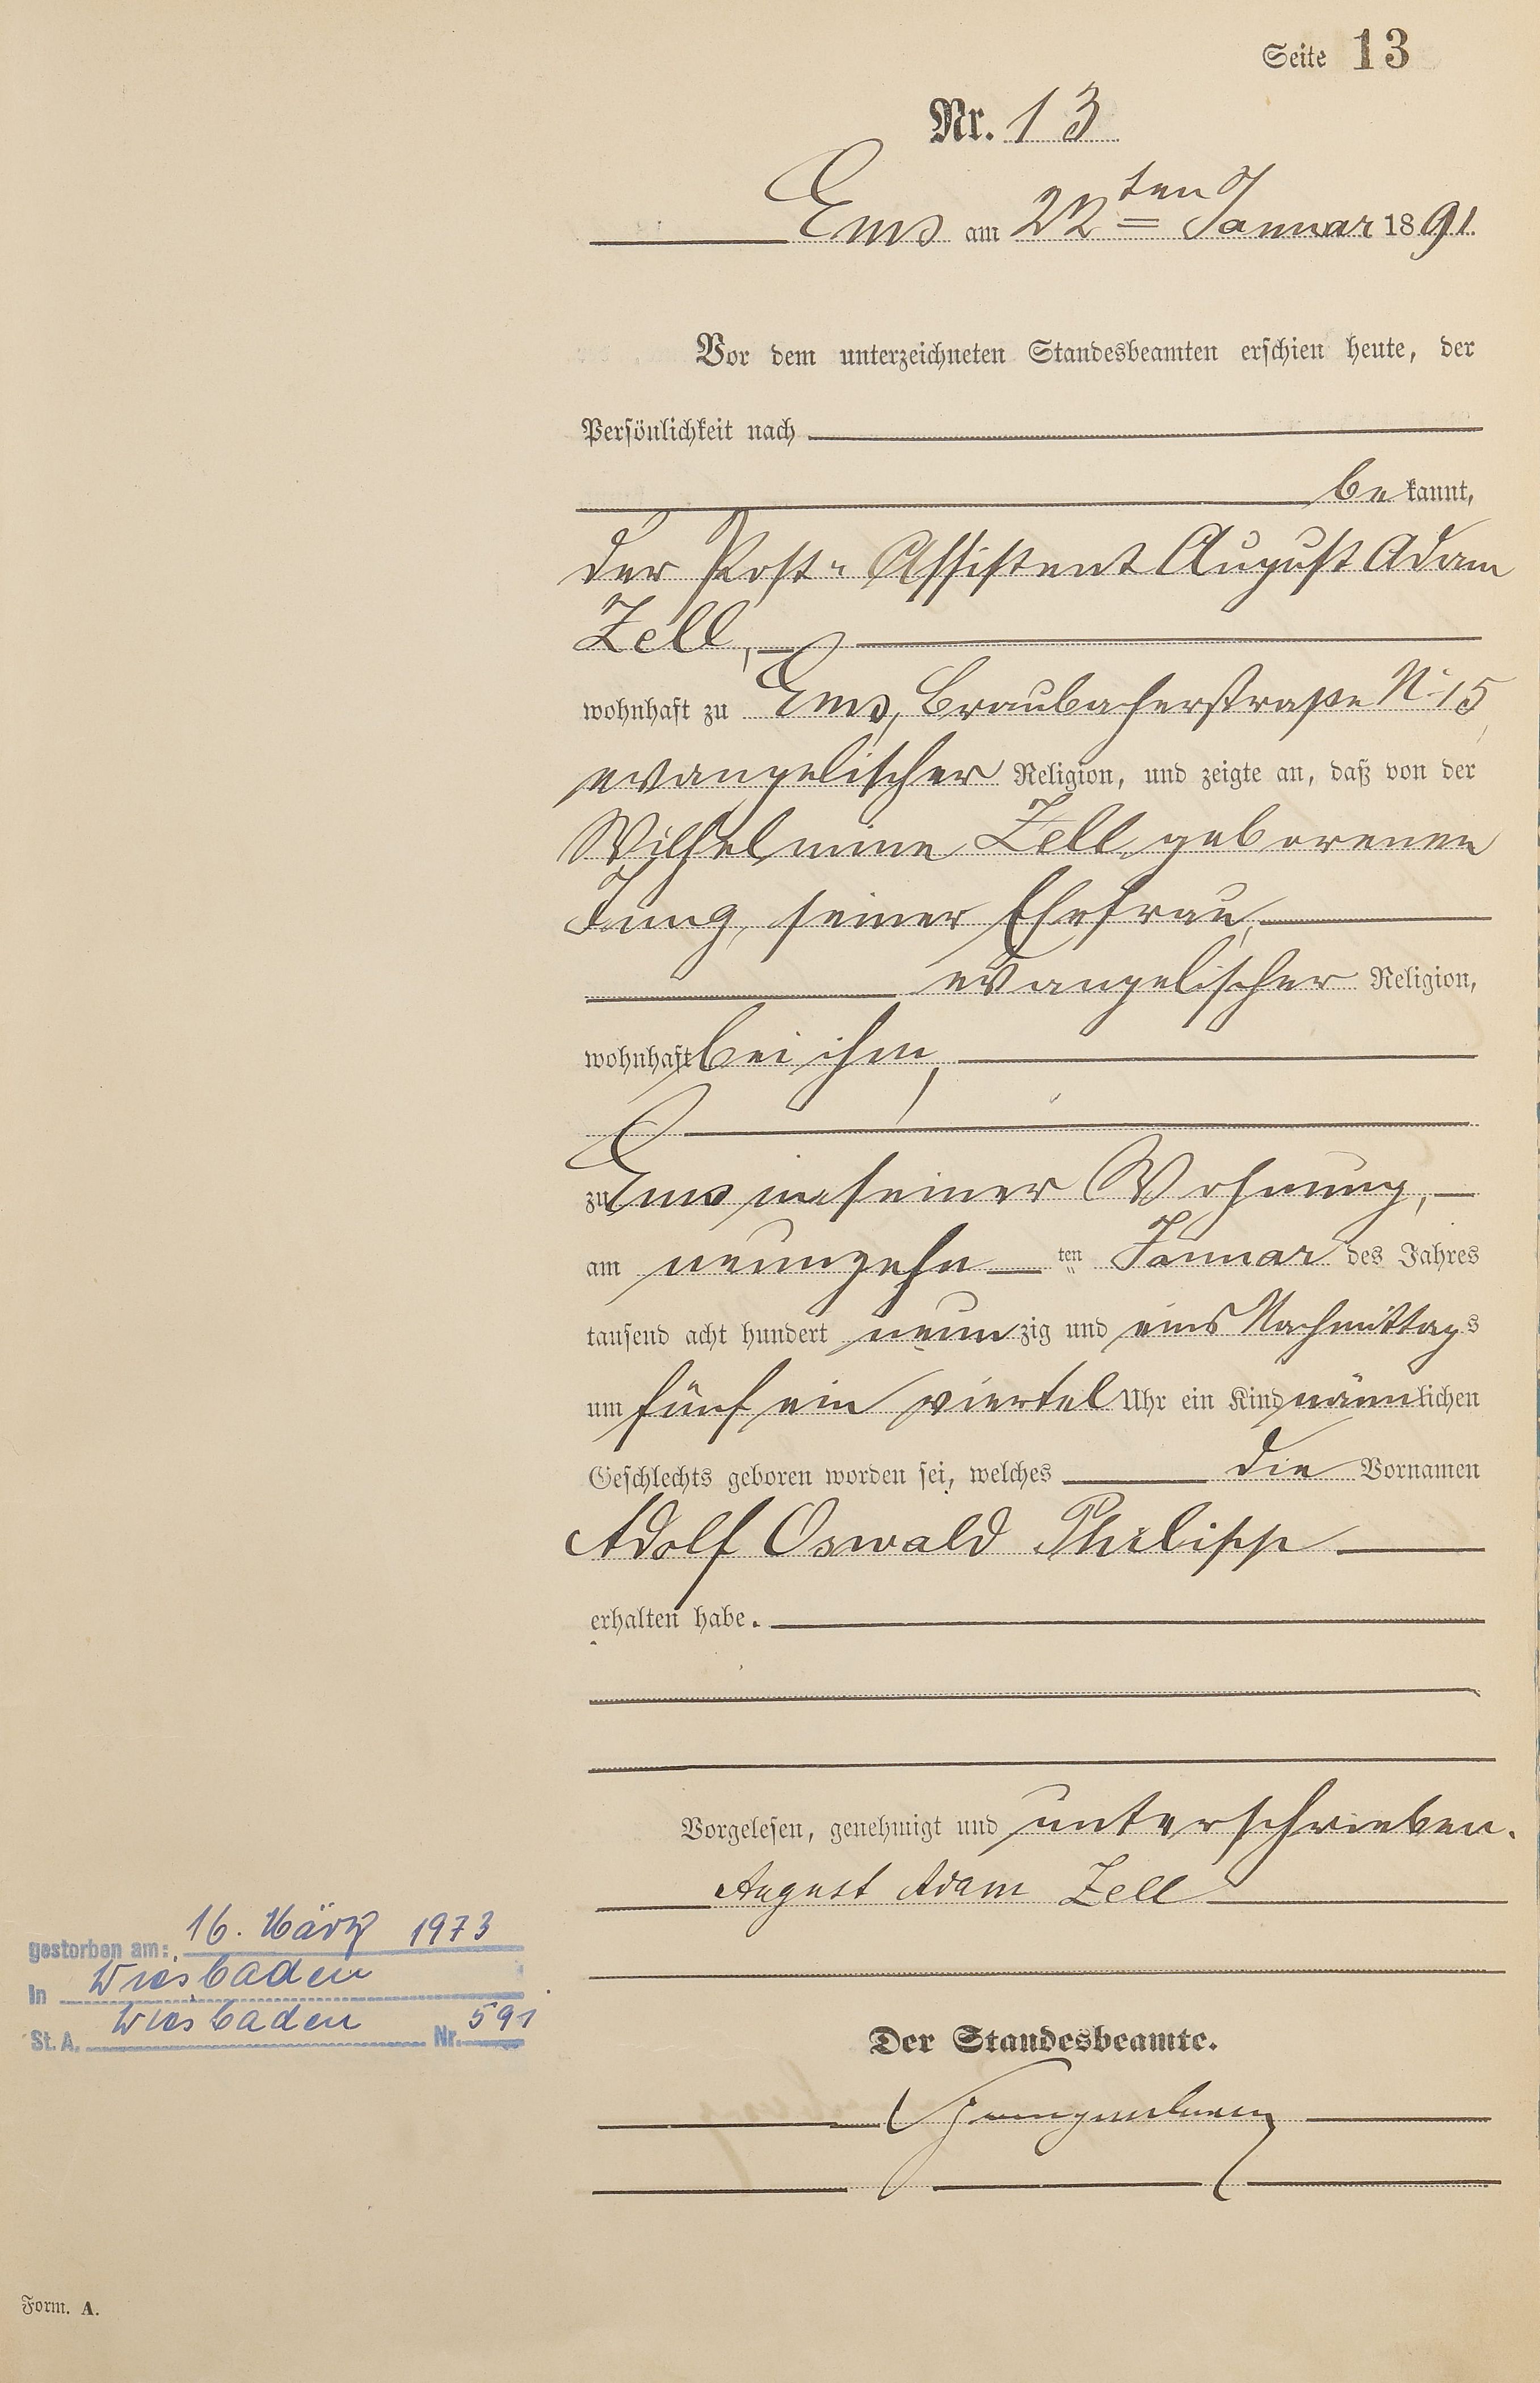 Seite 13
Nr. 13
Ems am 22ten Januar 1891.
Vor dem unterzeichneten Standesbeamten erschien heute, der
Persönlichkeit nach
bekannt,
der Post-Assistent August Adam
Zell,
wohnhaft zu Ems, Braubacherstraße N. 15,
evangelischer Religion, und zeigte an, daß von der
Wilhelmine Zell geborenen
Jung, seiner Ehefrau,
evangelischer Religion,
wohnhaft bei ihm,
zu Ems in seiner Wohnung,
am neunzehnten Januar des Jahres
tausend acht hundert neunzig und eins Nachmittags
um fünf ein viertel Uhr ein Kind männlichen
Geschlechts geboren worden sei, welches die Vornamen
Adolf Oswald Philipp
erhalten habe.
Vorgelesen, genehmigt und unterschrieben.
August Adam Zell
Der Standesbeamte.
gestorben am: 16. März 1973
In Wiesbaden
St. A. Wiesbaden Nr. 591
Form. A.